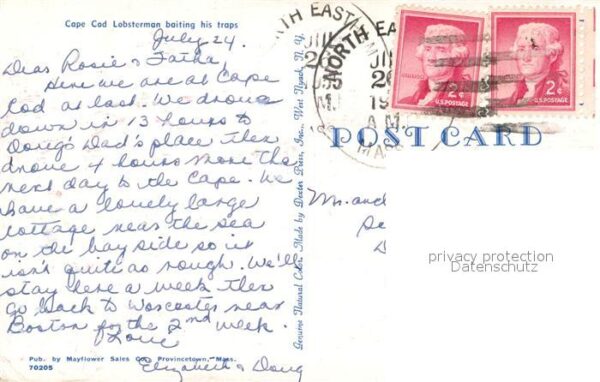 Cape Cod Lobsterman baiting his traps
July 24.
Dear Rosie & Fatha,
Here we are at Cape
Cod at last. We drove
down in 13 hours to
Doug's Dad's place then
drove 4 hours more the
next day to the Cape. We
have a lovely large
cottage near the sea
on the bay side so it
isn't quite as rough. We'll
stay here a week then
go back to Worcester near
Boston for the 2nd week.
Love
Elizabeth & Doug
Pub. by Mayflower Sales Co. Provincetown, Mass.
70205
Genuine Natural Color Made by Dexter Press, Inc., West Nyack, N. Y.
NORTH EAST
NORTH EA
MASS
A M
2¢
U.S. POSTAGE
2¢
U.S. POSTAGE
POST CARD
Mr. and
privacy protection
Datenschutz